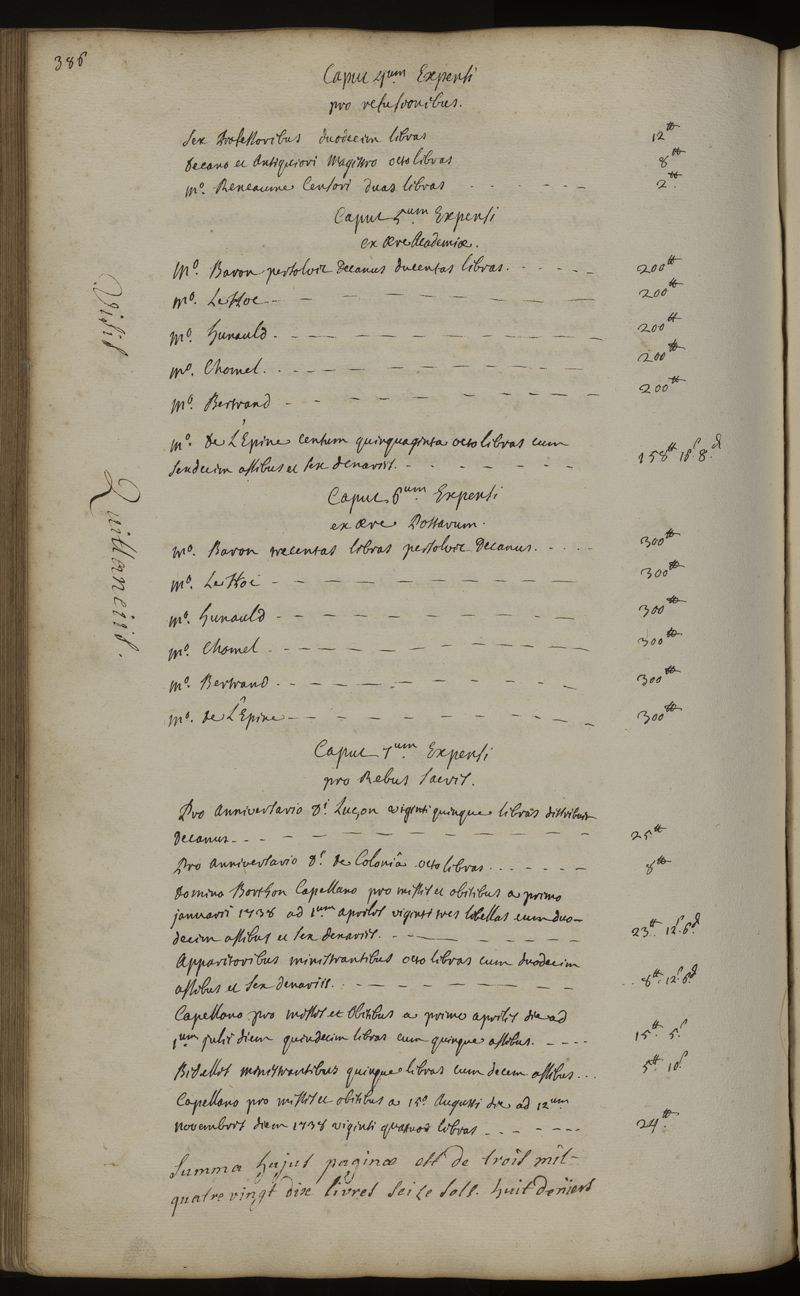 386
Caput 4um Expensi
pro refusionibus.
Sex Professoribus duodecim libras 12tt
Decano et Antiquiori Magistro octo libras 8tt
Mo. Reneaume Censori duas libras - - - - - - 2tt.
Caput 5um Expensi
ex ære Academiæ.
Mo. Baron persolvit Decanus ducentas libras. - - - - - 200tt
Mo. LeHoc - - - - - - - - - 200tt
Mo. Hunauld. - - - - - - - - - 200tt
Mo. Chomel. - - - - - - - - - 200tt
Mo. Bertrand - - - - - - - - - 200tt
Mo. De L'Epine centum quinquaginta octo libras cum
sexdecim assibus et sex denariis. - - - - - - - 158tt 16s. 8d.
Caput 6um Expensi
ex ære Postarum.
Mo. Baron trecentas libras persolvit Decanus. - - - - 300tt
Mo. LeHoc - - - - - - - - - 300tt
Mo. Hunauld - - - - - - - - - 300tt
Mo. Chomel - - - - - - - - - 300tt
Mo. Bertrand - - - - - - - - - 300tt
Mo. de L'Epine - - - - - - - - - 300tt
Caput 7um Expensi
pro Rebus sacris.
Pro Anniversario Di Luçon viginti quinque libras distribuit
Decanus - - - - - - - - - - 25tt
Pro anniversario Di. de Coloniâ octo libras - - - - - - 8tt
Domino Borthon Capellano pro missis et obitibus a primo
januarii 1738 ad 1um aprilis viginti tres libellas cum duo-
decim assibus et sex denariis. - - - - - - - 23tt. 12s. 6d.
Apparitoribus ministrantibus octo libras cum duodecim
assibus et sex denariis. - - - - - - - - - 8tt. 12s. 6d
Capellano pro missis et Obitibus a primo aprilis die ad
1um julii diem quindecim libras cum quinque assibus. - - - - 15tt. 5s
Bidellis ministrantibus quinque libras cum decem assibus... 5tt 10s.
Capellano pro missis et obitibus a 15o Augusti die ad 12um
novembris diem 1738 viginti quatuor libras - - - - - - 24tt.
Summa hujus paginæ est de trois mil-
quatre vingt dix livres seize sols. huit deniers
Visis
Quittanciis.